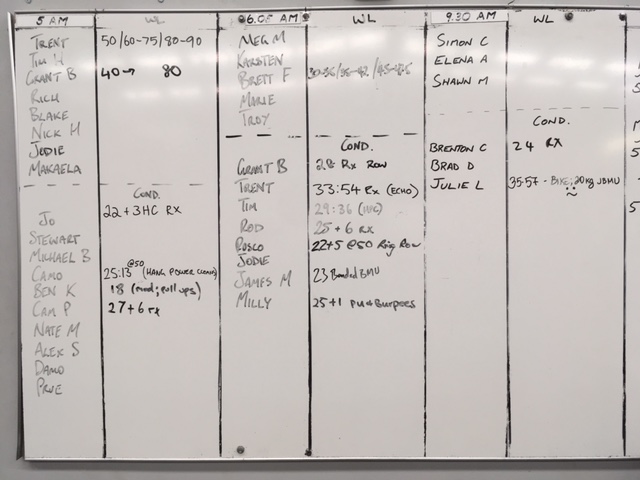 5 AM WL
TRENT 50/60-75/80-90
TIM H
GRANT B 40→ 80
RICH
BLAKE
NICK H
JODIE
MAKAELA
COND.
JO 22 + 3HC RX
STEWART
MICHAEL B
CAMO 25:13 @50 (HANG POWER CLEANS)
BEN K 18 (mod; pull ups)
CAM P 27+6 rx
NATE M
ALEX S
DAMO
PRUE
6.05 AM WL
MEG M
KIRSTEN
BRETT F
MARIE
TROY
COND.
GRANT B 28 Rx Row
TRENT 33:54 Rx (ECHO)
TIM 29:36
ROD 25 + 6 RX
ROSCO 22+5 @50 Ring Row
JODIE
JAMES M 23, Banded BMU
MILLY 25+1 PU & Burpees
9.30 AM WL
SIMON C
ELENA A
SHAWN M
COND.
BRENTON C 24 RX
BRAD D
JULIE L 35:57 - BIKE; 20kg JBMU